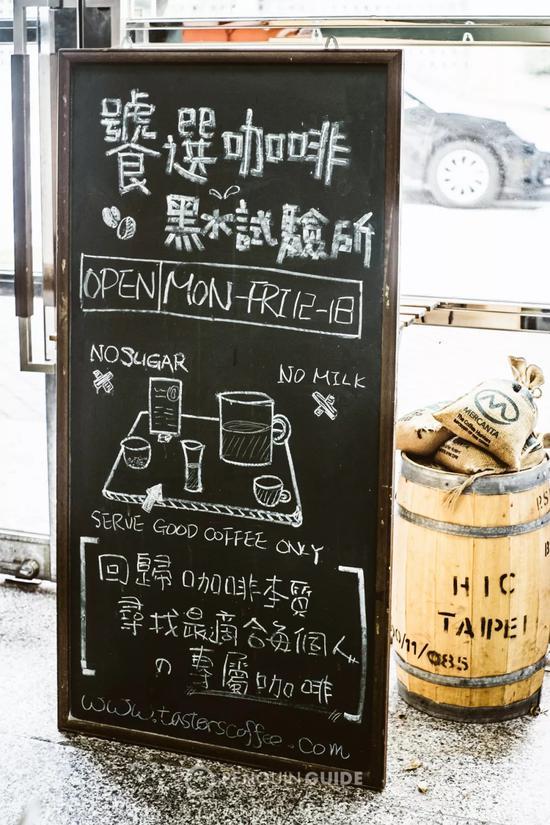 饕選咖啡
黑水試驗所
OPEN MON-FRI 12-18
NO SUGAR
NO MILK
SERVE GOOD COFFEE ONLY
回歸咖啡本質
尋找最適合每個人
の專屬咖啡
www.tasterscoffee.com
MERCANTA
The Coffee Hunters
HIC
TAIPEI
00/11/085
PENQUIN GUIDE